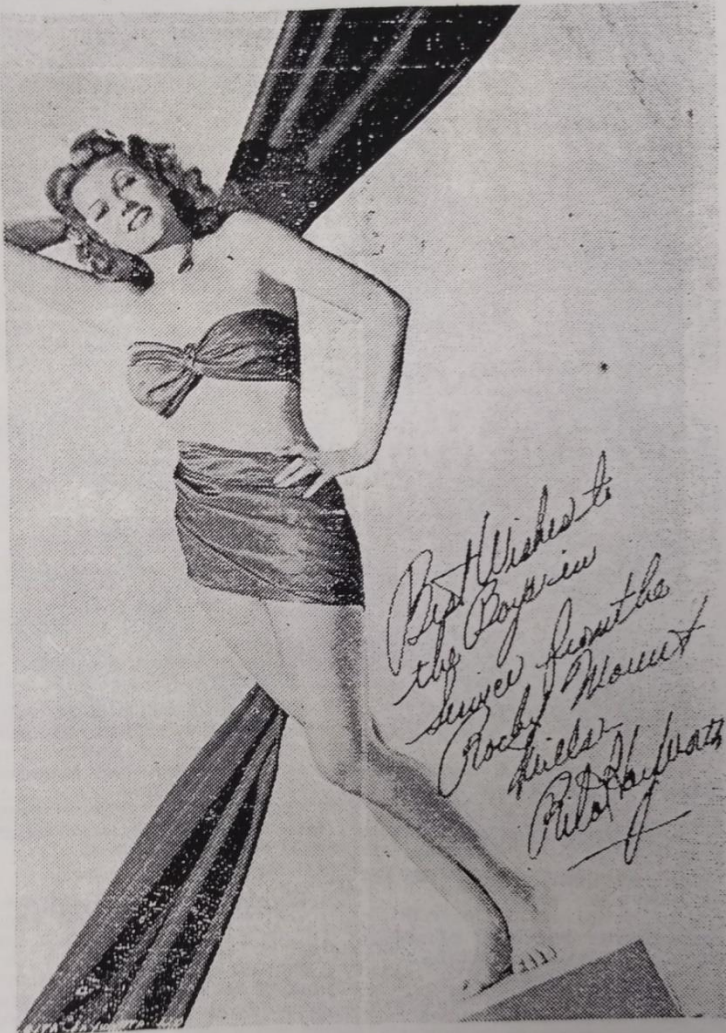 Best Wishes to
the Boys in
Service from the
Rocky Mount
Mills
Rita Hayworth